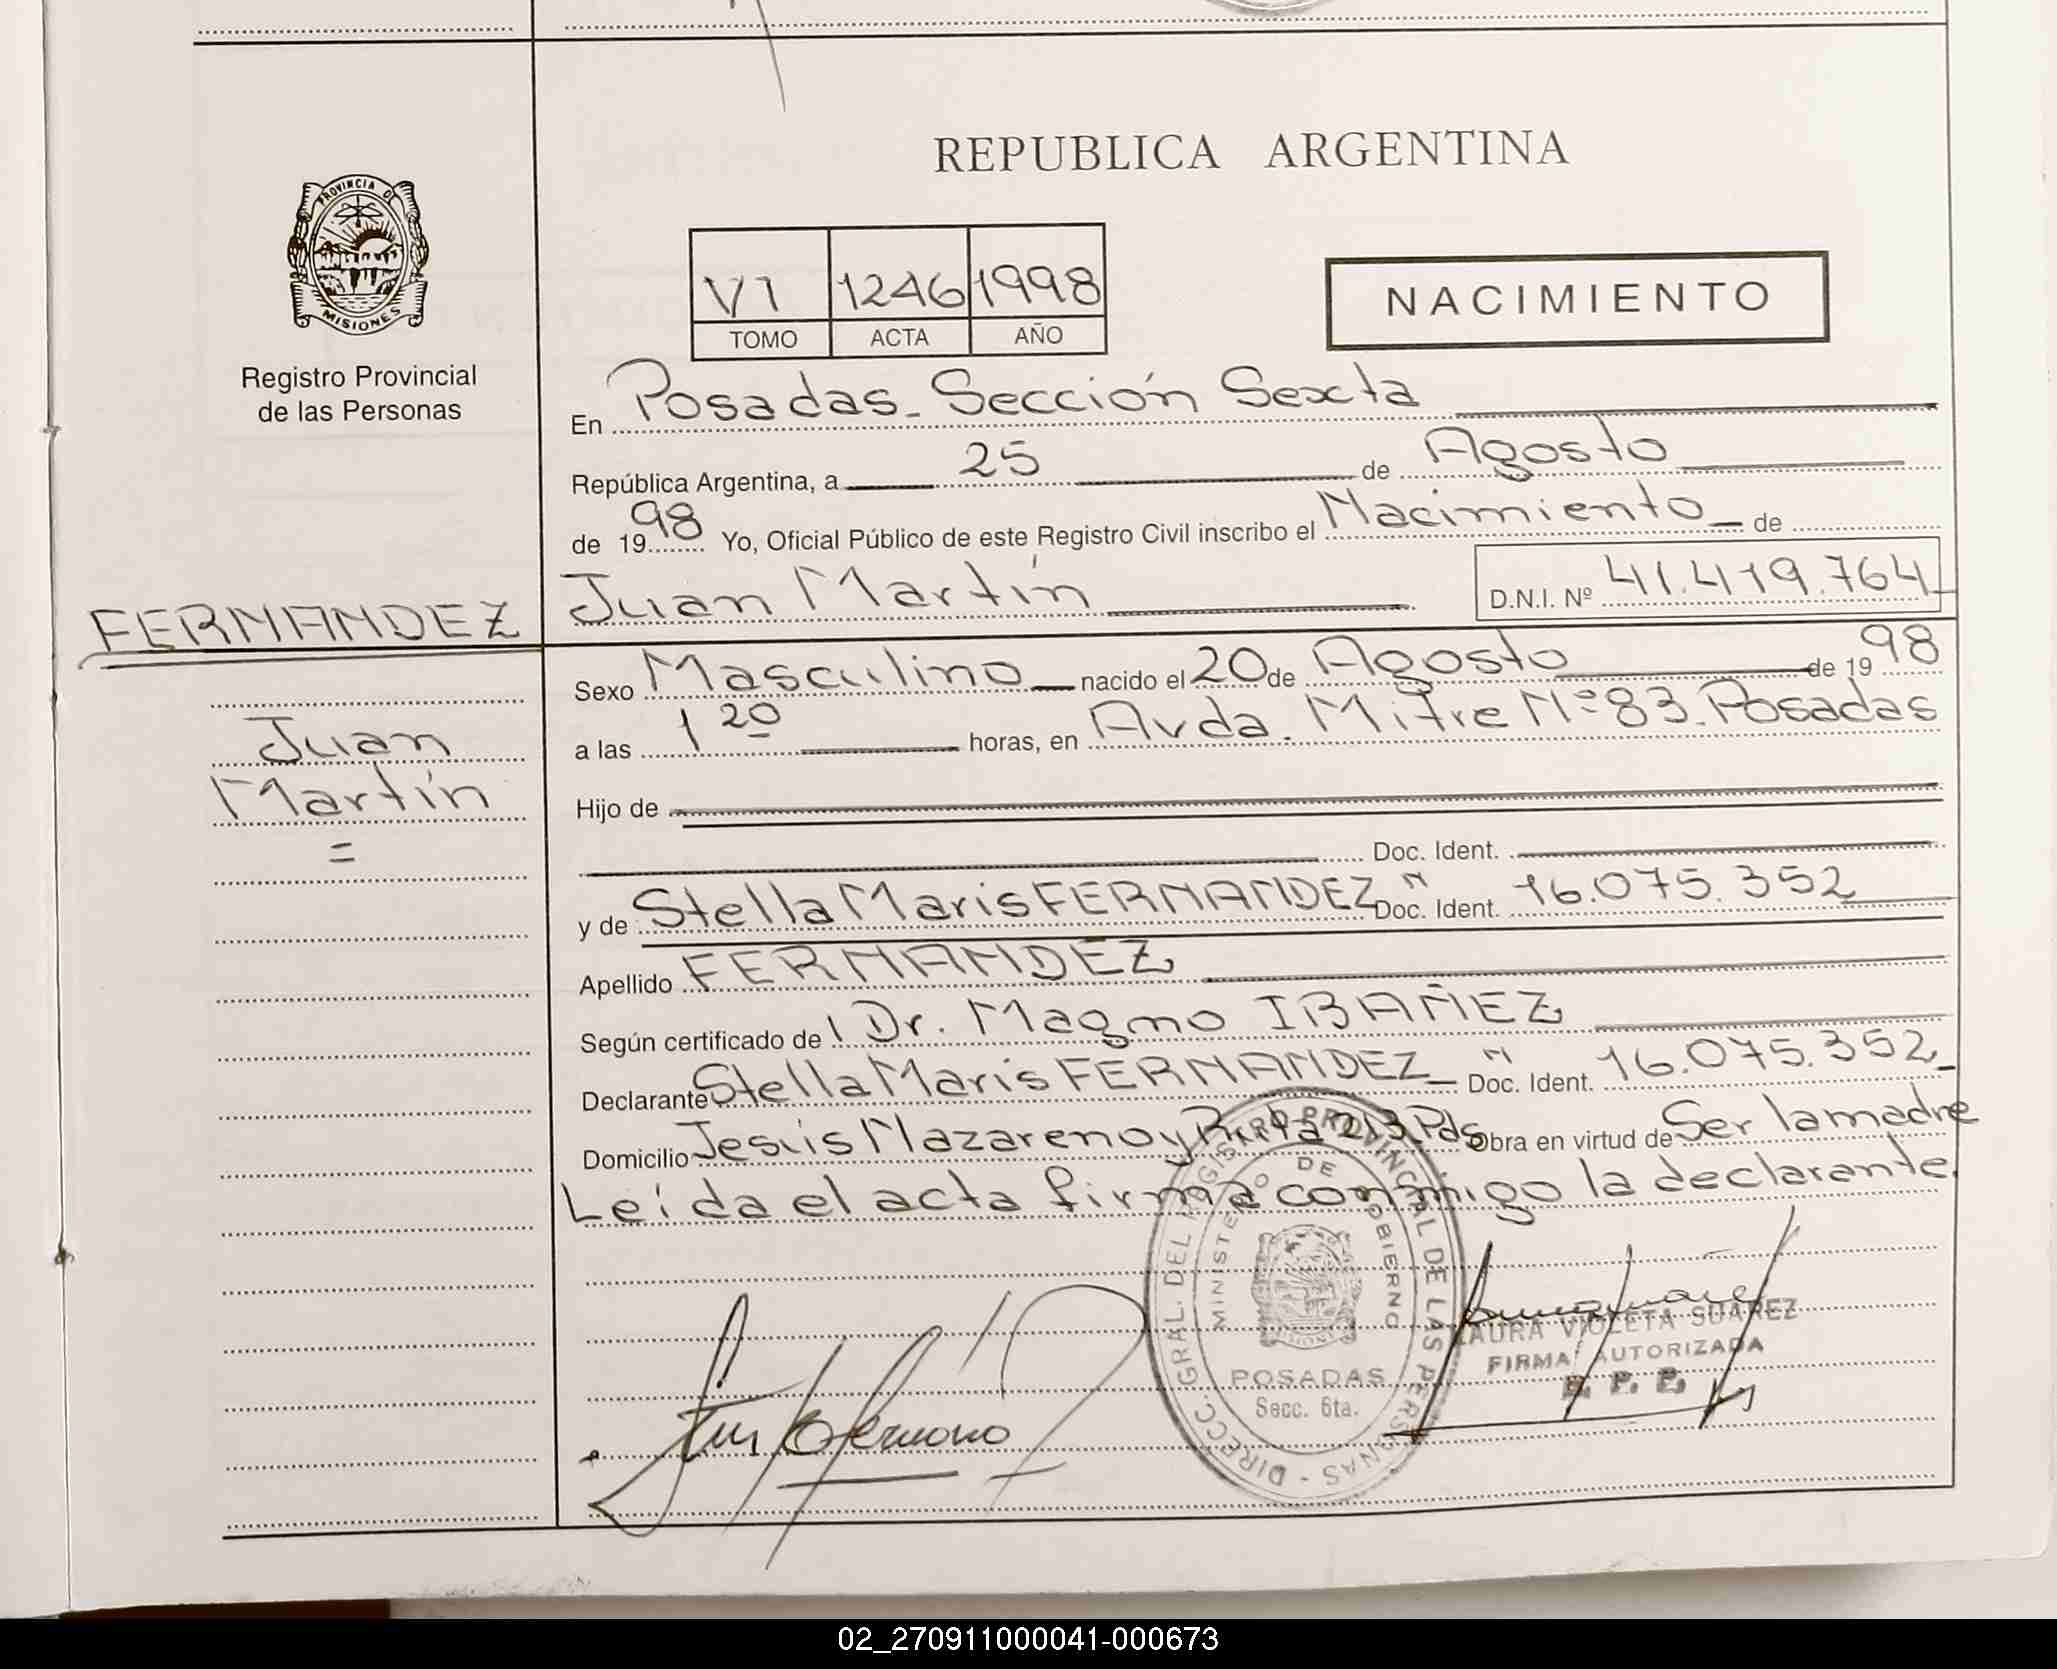 REPUBLICA ARGENTINA
PROVINCIA DE
MISIONES
Registro Provincial
de las Personas
VI 1246 1998
TOMO ACTA AÑO
NACIMIENTO
En Posadas - Sección Sexta
República Argentina, a 25 de Agosto
de 1998 Yo, Oficial Público de este Registro Civil inscribo el Nacimiento de
Juan Martín D.N.I. Nº 41.419.764
FERNANDEZ
Juan
Martín
=
Sexo Masculino nacido el 20 de Agosto de 1998
a las 1 20 horas, en Avda. Mitre Nº 83. Posadas
Hijo de
Doc. Ident.
y de Stella Maris FERNANDEZ Doc. Ident. 16.075.352
Apellido FERNANDEZ
Según certificado de Dr. Magno IBAÑEZ
Declarante Stella Maris FERNANDEZ Doc. Ident. 16.075.352
Domicilio Jesús Nazareno y 213 Pdas Obra en virtud de Ser la madre
Leída el acta firma conmigo la declarante.
DIRECC. GRAL. DEL REGISTRO PROVINCIAL DE LAS PERSONAS
MINISTERIO DE GOBIERNO
POSADAS
Secc. 6ta.
LAURA VIOLETA SUAREZ
FIRMA AUTORIZADA
02_270911000041-000673